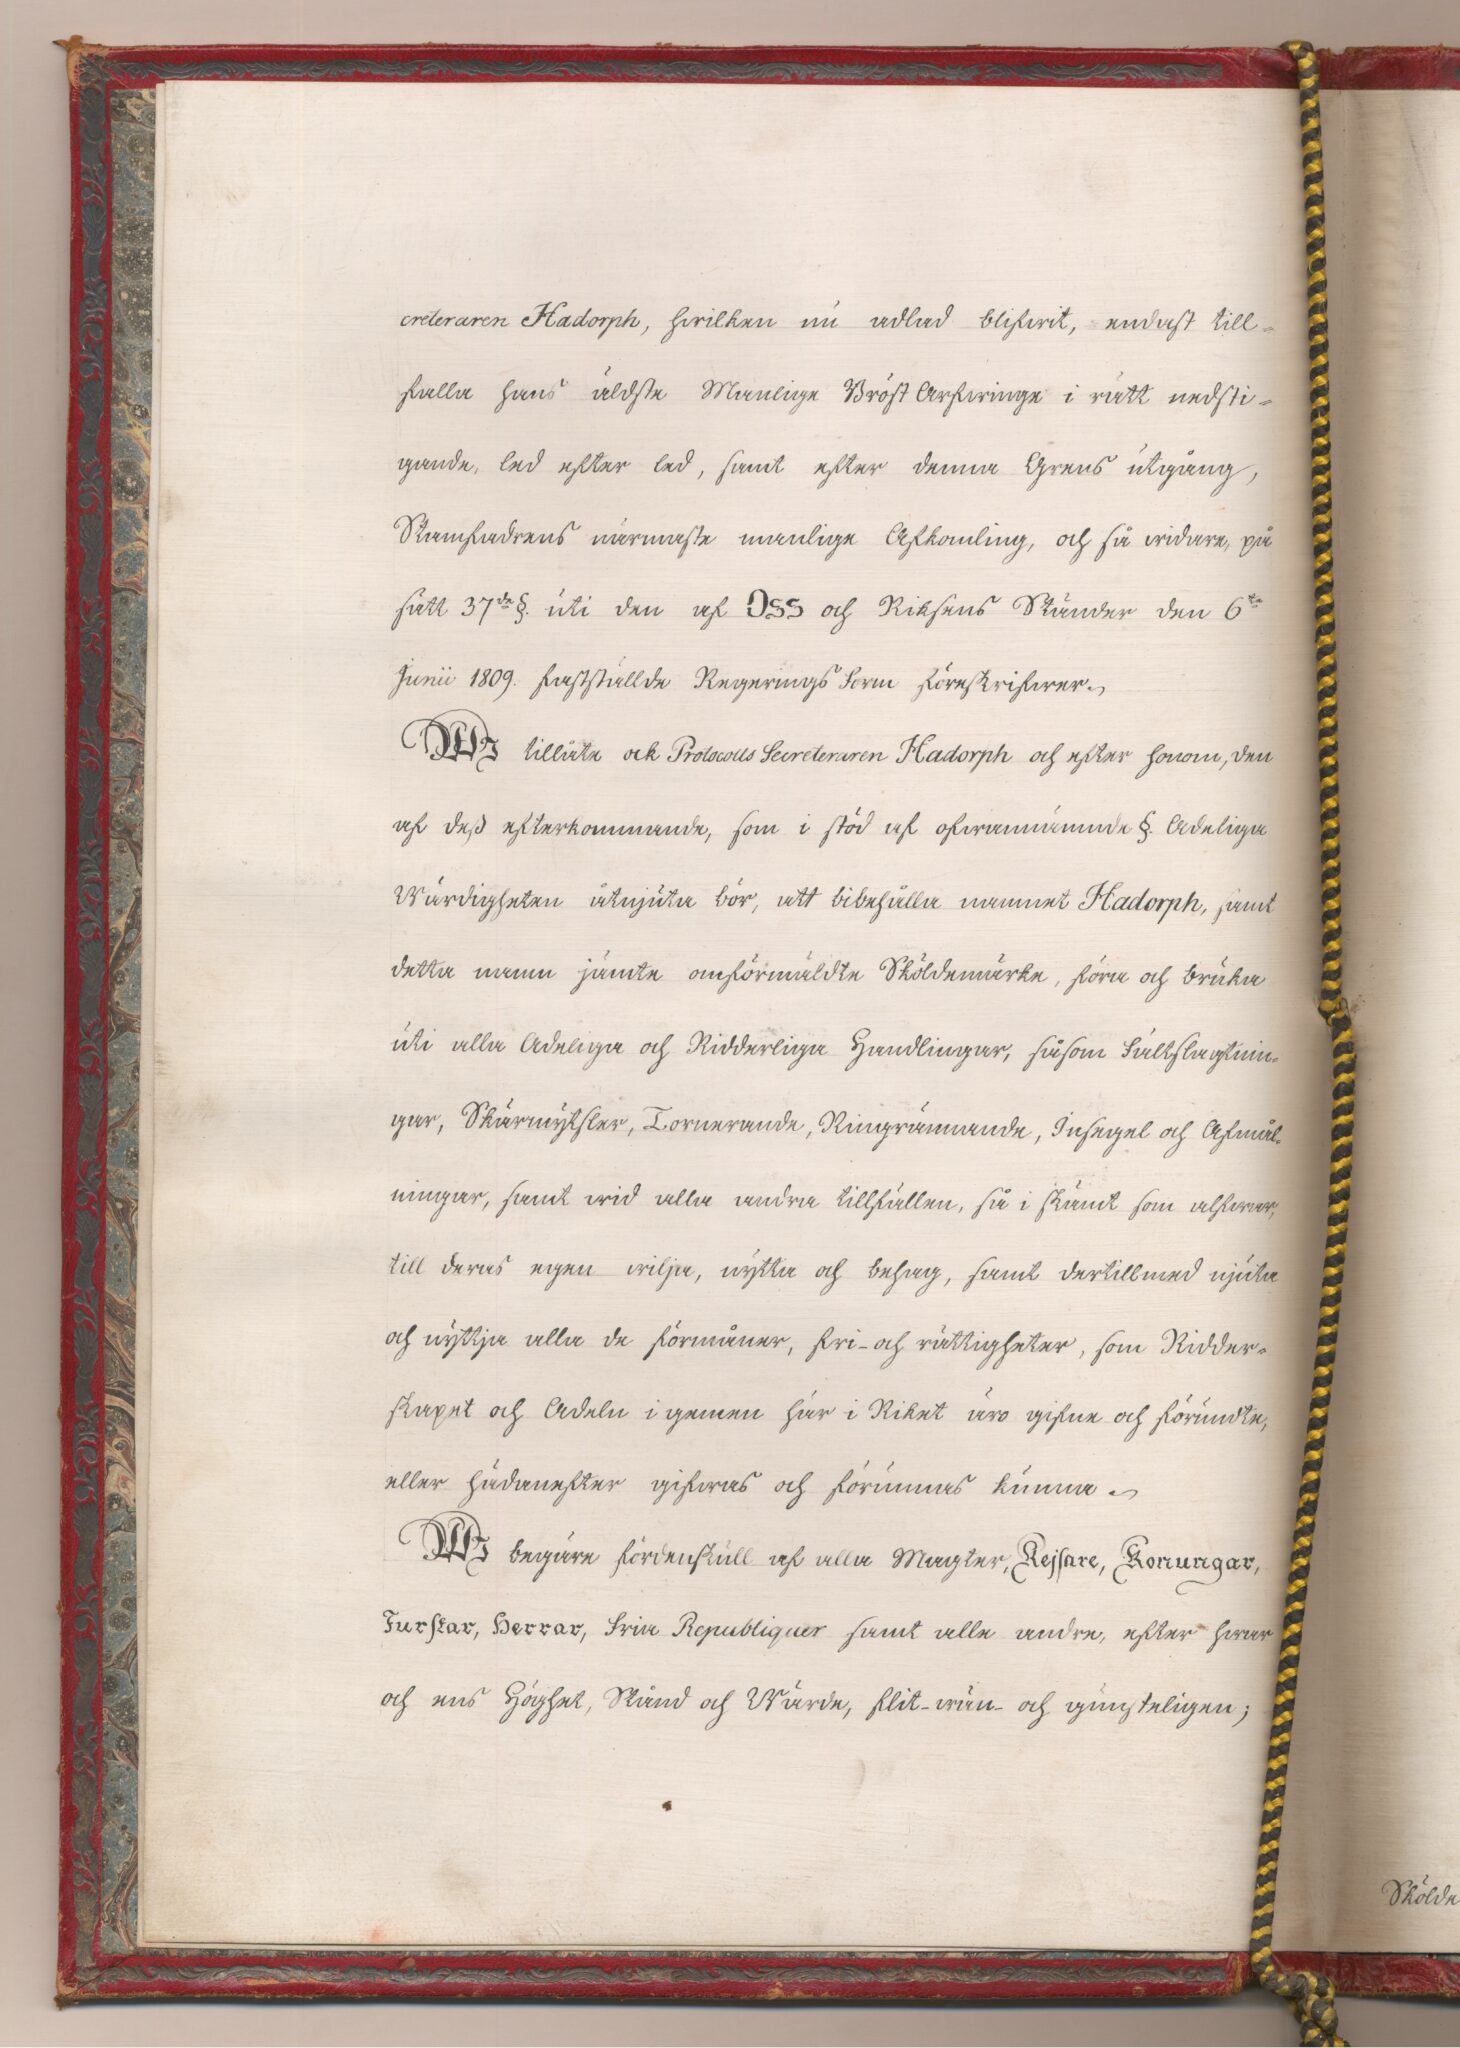 creteraren Hadorph, hwilken nu adlad blifwit, endast till-
falla hans äldste Manlige Bröst Arfwinge i rätt nedsti-
gande, led efter led, samt efter denna Grens utgång,
Stamfadrens närmaste manlige Afkomling, och så widare, på
sätt 37de §. uti den af Oss och Riksens Ständer den 6te
Junii 1809. fastställde Regerings Form föreskrifwer.
Wi tillåte ock Protocolls Secreteraren Hadorph och efter honom, den
af deß efterkommande, som i stöd af ofwannämnde §. Adeliga
Wärdigheten åtnjuta bör, att bibehålla namnet Hadorph, samt
detta namn jämte omförmäldte Sköldemärke, föra och bruka
uti alla Adeliga och Ridderliga Handlingar, såsom Fältslagtnin-
gar, Skärmytsler, Tornerande, Ringrännande, Insegel och Afmål-
ningar, samt wid alla andra tillfällen, så i skämt som alfwar,
till deras egen wilja, nytta och behag, samt dertillmed njuta
och nyttja alla de förmåner, fri- och rättigheter, som Ridder-
skapet och Adeln i gemen här i Riket äro gifne och förundte,
eller hädanefter gifwas och förunnas kunna.
Wi begäre fördenskull af alla Magter, Kejsare, Konungar,
Furstar, Herrar, Fria Republiquer samt alle andre, efter hwar
och ens Höghet, Stånd och Wärde, flit- wän- och gunsteligen;
Skölde